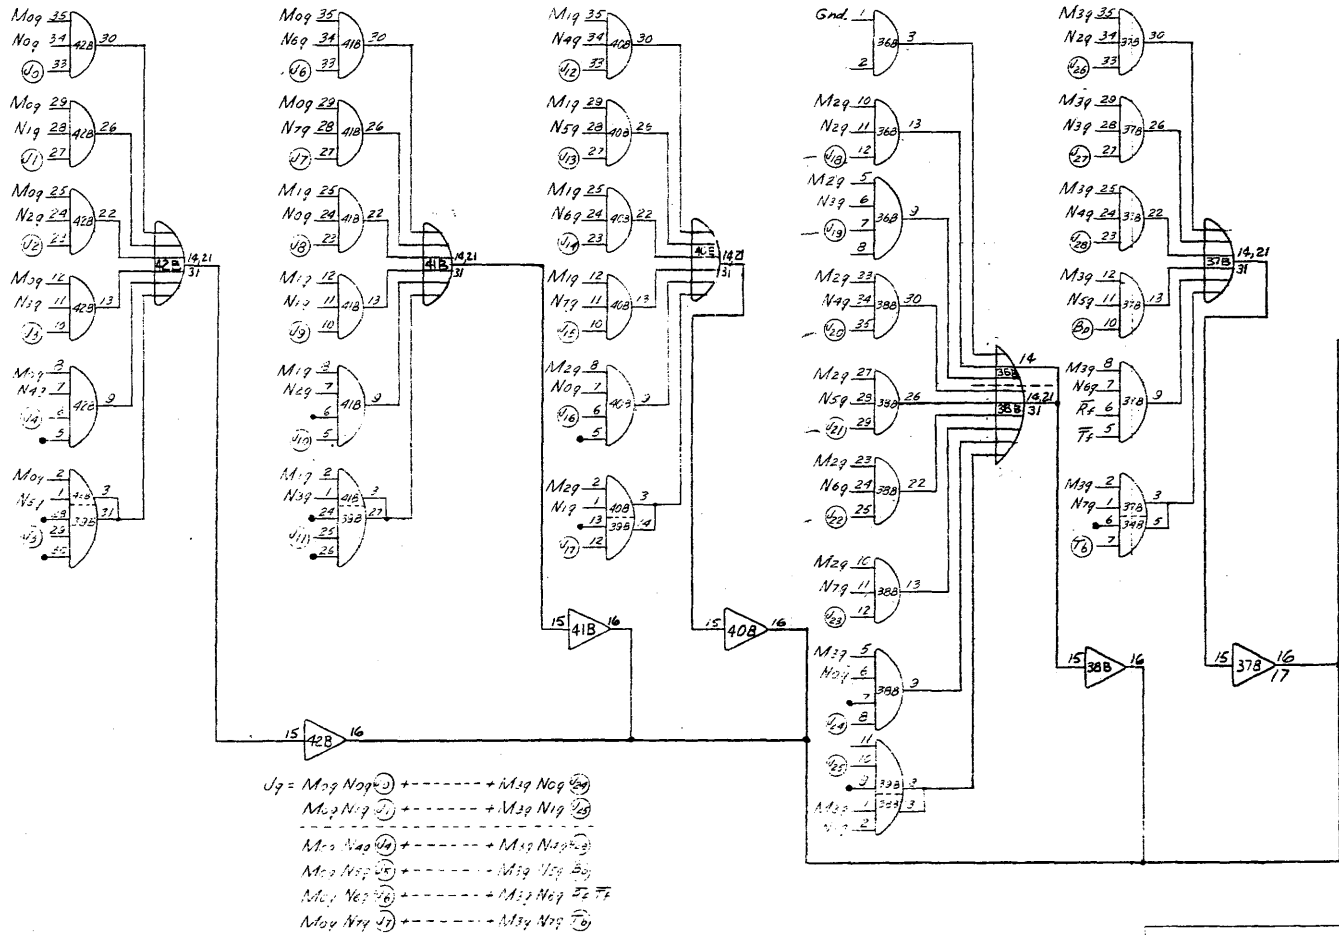 M0q 35
N0q 34 42B 30
J0 33
M0q 29
N1q 28 42B 26
J1 27
M0q 25
N2q 24 42B 22
J2 23
M0q 12
N3q 11 42B 13
J3 10
8
N4q 7 42B 9
J4 6
5
M0q 2
1 42B 3
39B 31
J5 29
42B 14,21
31
M0q 35
N6q 34 41B 30
J6 33
M0q 29
N7q 28 41B 26
J7 27
M1q 25
N0q 24 41B 22
J8 23
M1q 12
N1q 11 41B 13
J9 10
M1q 8
N2q 7 41B 9
6
J10 5
M1q 2
N3q 1 41B 3
24 39B 27
J11 25
26
41B 14,21
31
M1q 35
N4q 34 40B 30
J12 33
M1q 29
N5q 28 40B 26
J13 27
M1q 25
N6q 24 40B 22
J14 23
M1q 12
N7q 11 40B 13
J15 10
M2q 8
N0q 7 40B 9
J16 6
5
M2q 2
N1q 1 40B 3
13 39B 14
J17 12
40B 14,21
31
Gnd. 1
36B 3
2
M2q 10
N2q 11 36B 13
J18 12
M2q 5
N3q 6 36B 9
J19 7
8
M2q 33
N4q 34 38B 30
J20 35
M2q 27
N5q 28 38B 26
J21 29
M2q 23
N6q 24 38B 22
J22 25
M2q 10
N7q 11 38B 13
J23 12
M3q 5
N0q 6 38B 9
7
J24 8
11
J25 10
9 39B
M3q 1 38B 3
2
36B 14
38B 14,21
31
M3q 35
N2q 34 37B 30
J26 33
M3q 29
N3q 28 37B 26
J27 27
M3q 25
N4q 24 37B 22
J28 23
M3q 12
N5q 11 37B 13
B0 10
M3q 8
N6q 7 37B 9
R̅f 6
T̅f 5
M3q 2
N7q 1 37B 3
6 34B 5
T6 7
37B 14,21
31
15 41B 16
15 40B 16
15 38B 16
15 37B 16
17
15 42B 16
Jq = M0q N0q J0 + - - - - - - - + M3q N0q J24
M0q N1q J1 + - - - - - - - + M3q N1q J25
M0q N4q J4 + - - - - - - - + M3q N4q
M0q N5q J5 + - - - - - - - + M3q N5q
M0q N6q J6 + - - - - - - - + M3q N6q
M0q N7q J7 + - - - - - - - + M3q N7q